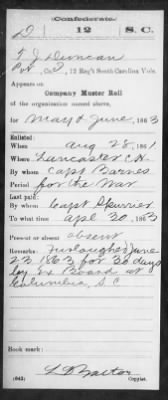 Confederate.
D 12 S.C.
T J Duncan
Pvt, Co. D, 12 Reg't South Carolina Vols.
Appears on
Company Muster Roll
of the organization named above,
for May & June, 1863
Enlisted:
When Aug 28, 1861
Where Lancaster C.H.
By whom Capt Barnes
Period for the War
Last paid:
By whom Capt Spurrier
To what time Apl 30, 1863
Present or absent absent
Remarks: Furloughed June
23 1863 for 30 days
by Ex Board at
Columbia, S.C
Book mark:
(642) Copyist.